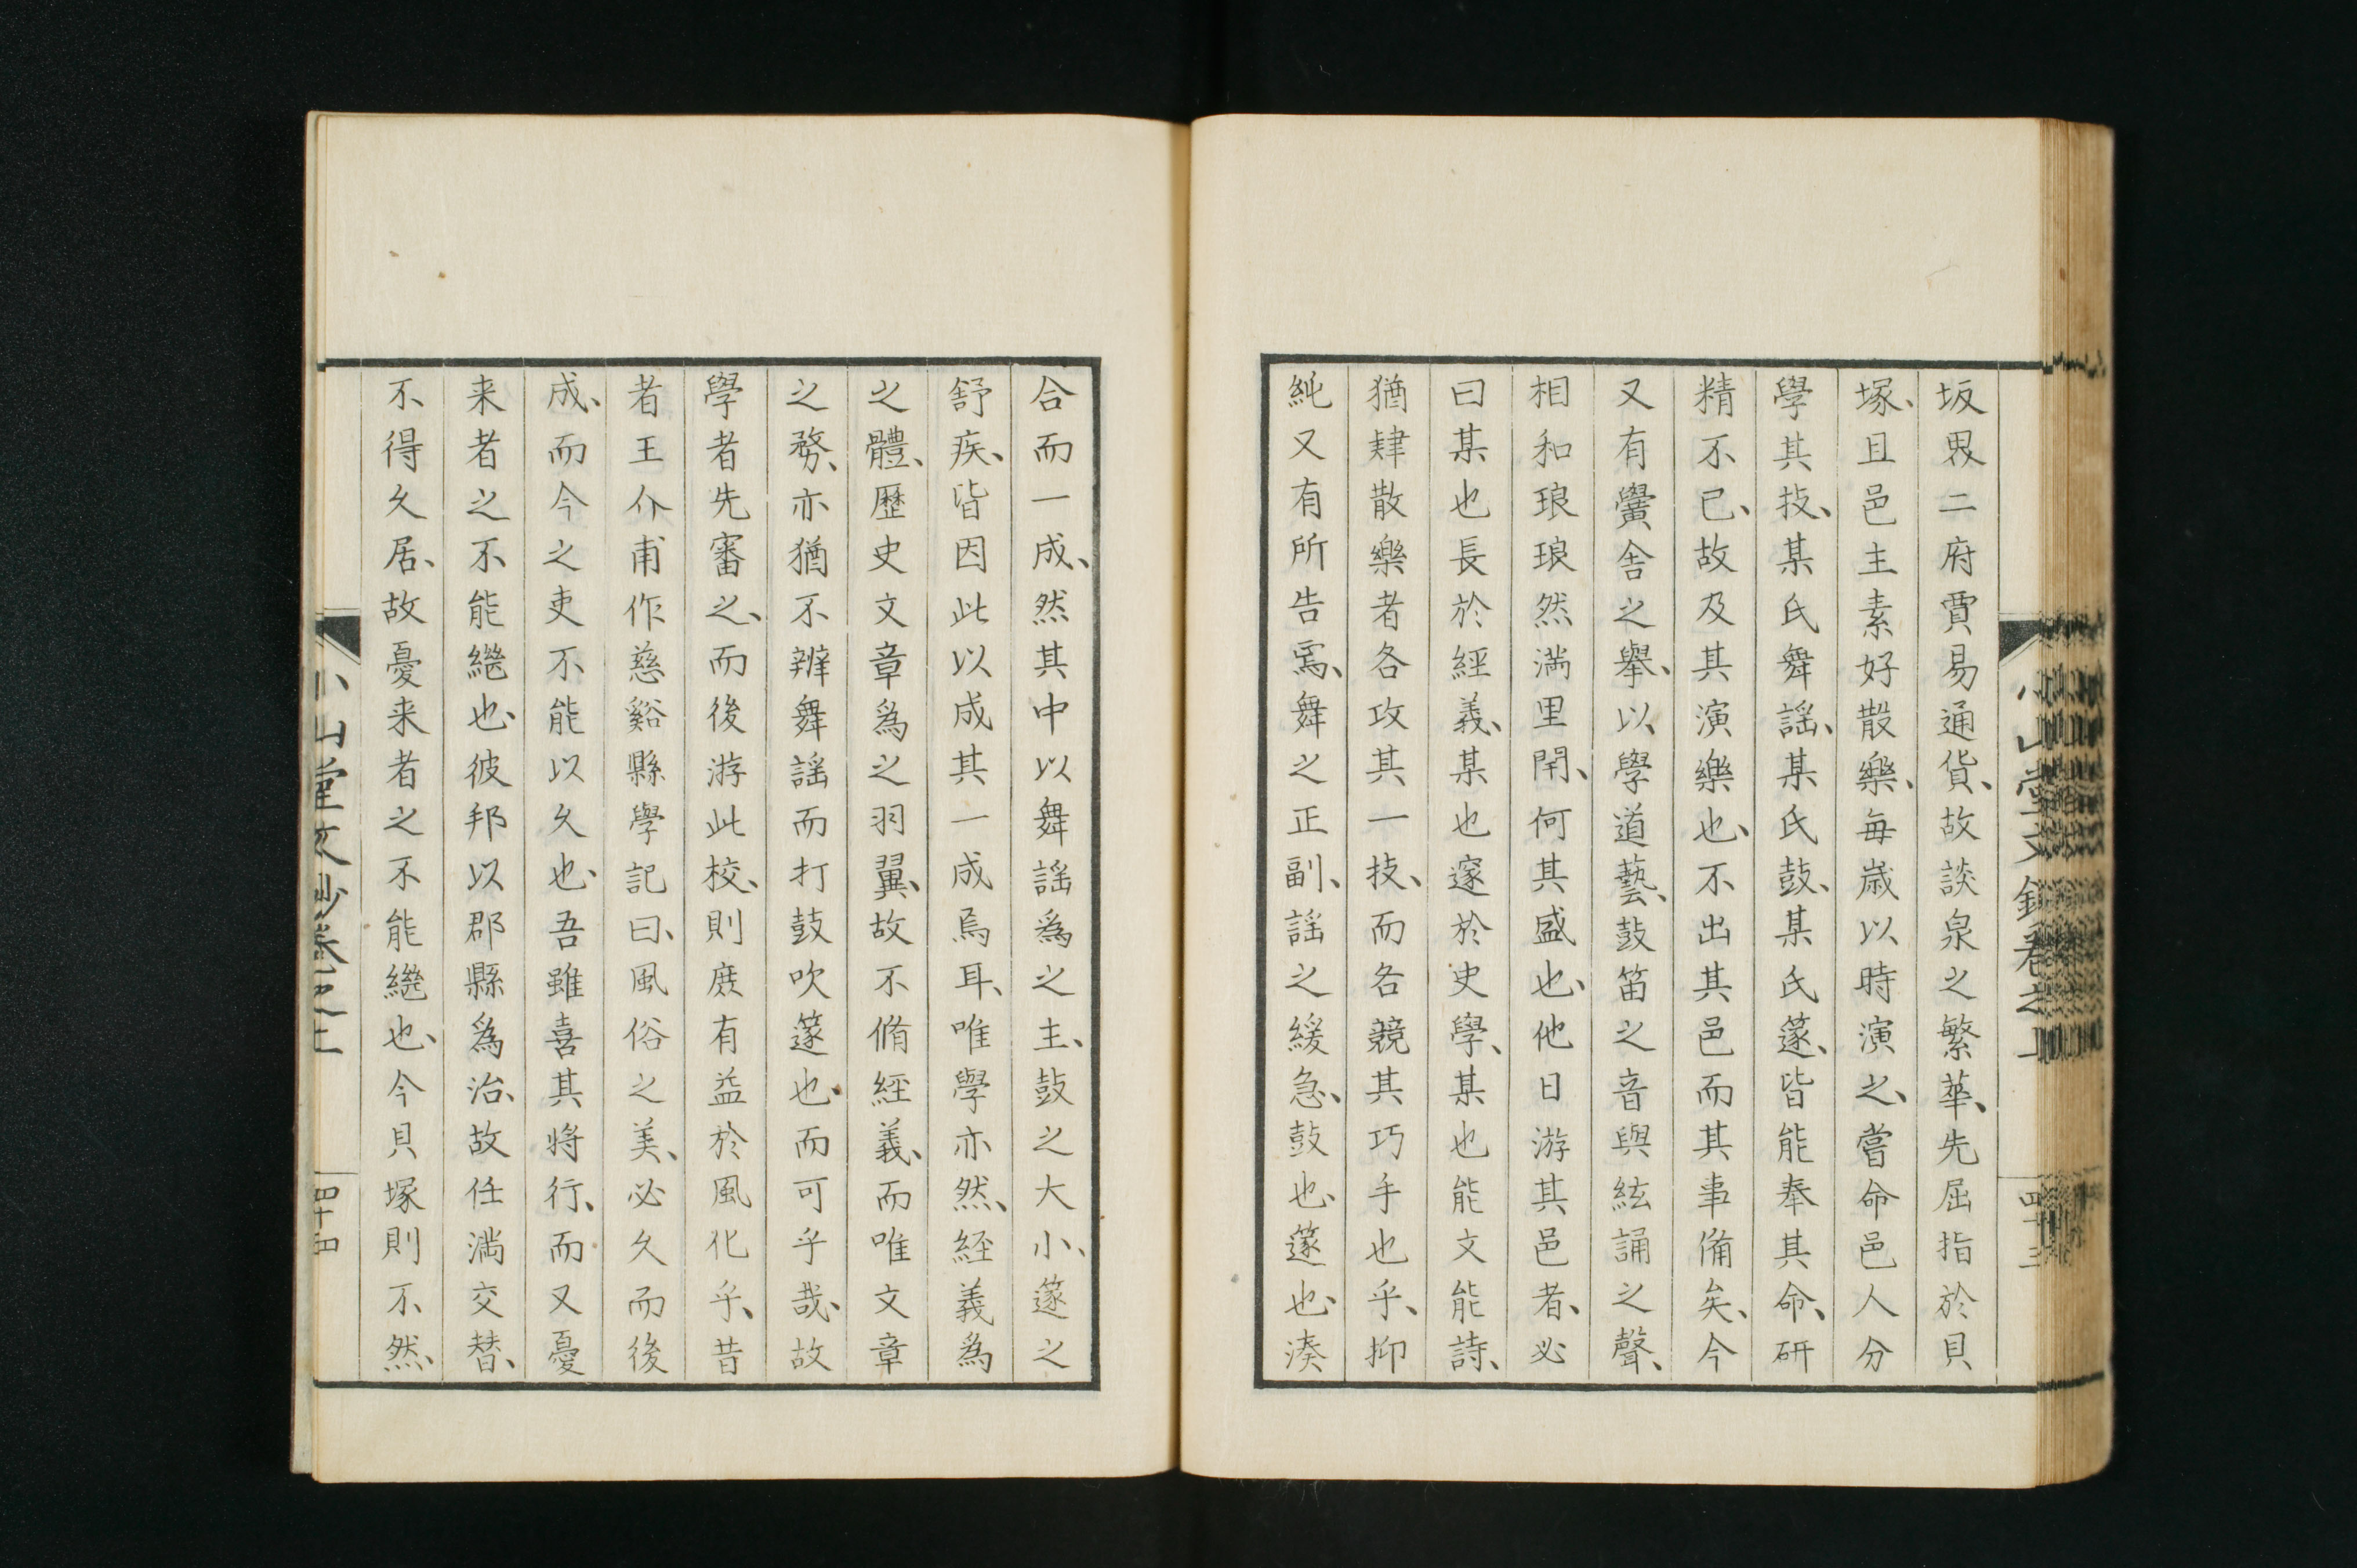 坂界二府賈易通貨、故談泉之繁華、先屈指於貝
塚、且邑主素好散樂、毎歳以時演之、嘗命邑人分
學其技、某氏舞謡、某氏鼓、某氏篴、皆能奉其命、研
精不已、故及其演樂也、不出其邑而其事備矣、今
又有黌舎之擧、以學道藝、鼓笛之音與絃誦之聲、
相和琅琅然満里閈、何其盛也、他日游其邑者、必
曰某也長於經義、某也邃於史學、某也能文能詩、
猶肄散樂者各攻其一技、而各競其巧手也乎、抑
純又有所告焉、舞之正副、謡之緩急、鼓也、篴也、湊
小山堂文鈔卷之上
四十三
合而一成、然其中以舞謡爲之主、鼓之大小、篴之
舒疾、皆因此以成其一成焉耳、唯學亦然、經義爲
之體、歴史文章爲之羽翼、故不脩經義、而唯文章
之務、亦猶不辨舞謡而打鼓吹篴也、而可乎哉、故
學者先審之、而後游此校、則庶有益於風化乎、昔
者王介甫作慈谿縣學記曰、風俗之美、必久而後
成、而今之吏不能以久也、吾雖喜其將行、而又憂
来者之不能繼也、彼邦以郡縣爲治、故任満交替、
不得久居、故憂来者之不能繼也、今貝塚則不然、
小山堂文鈔卷之上
四十四